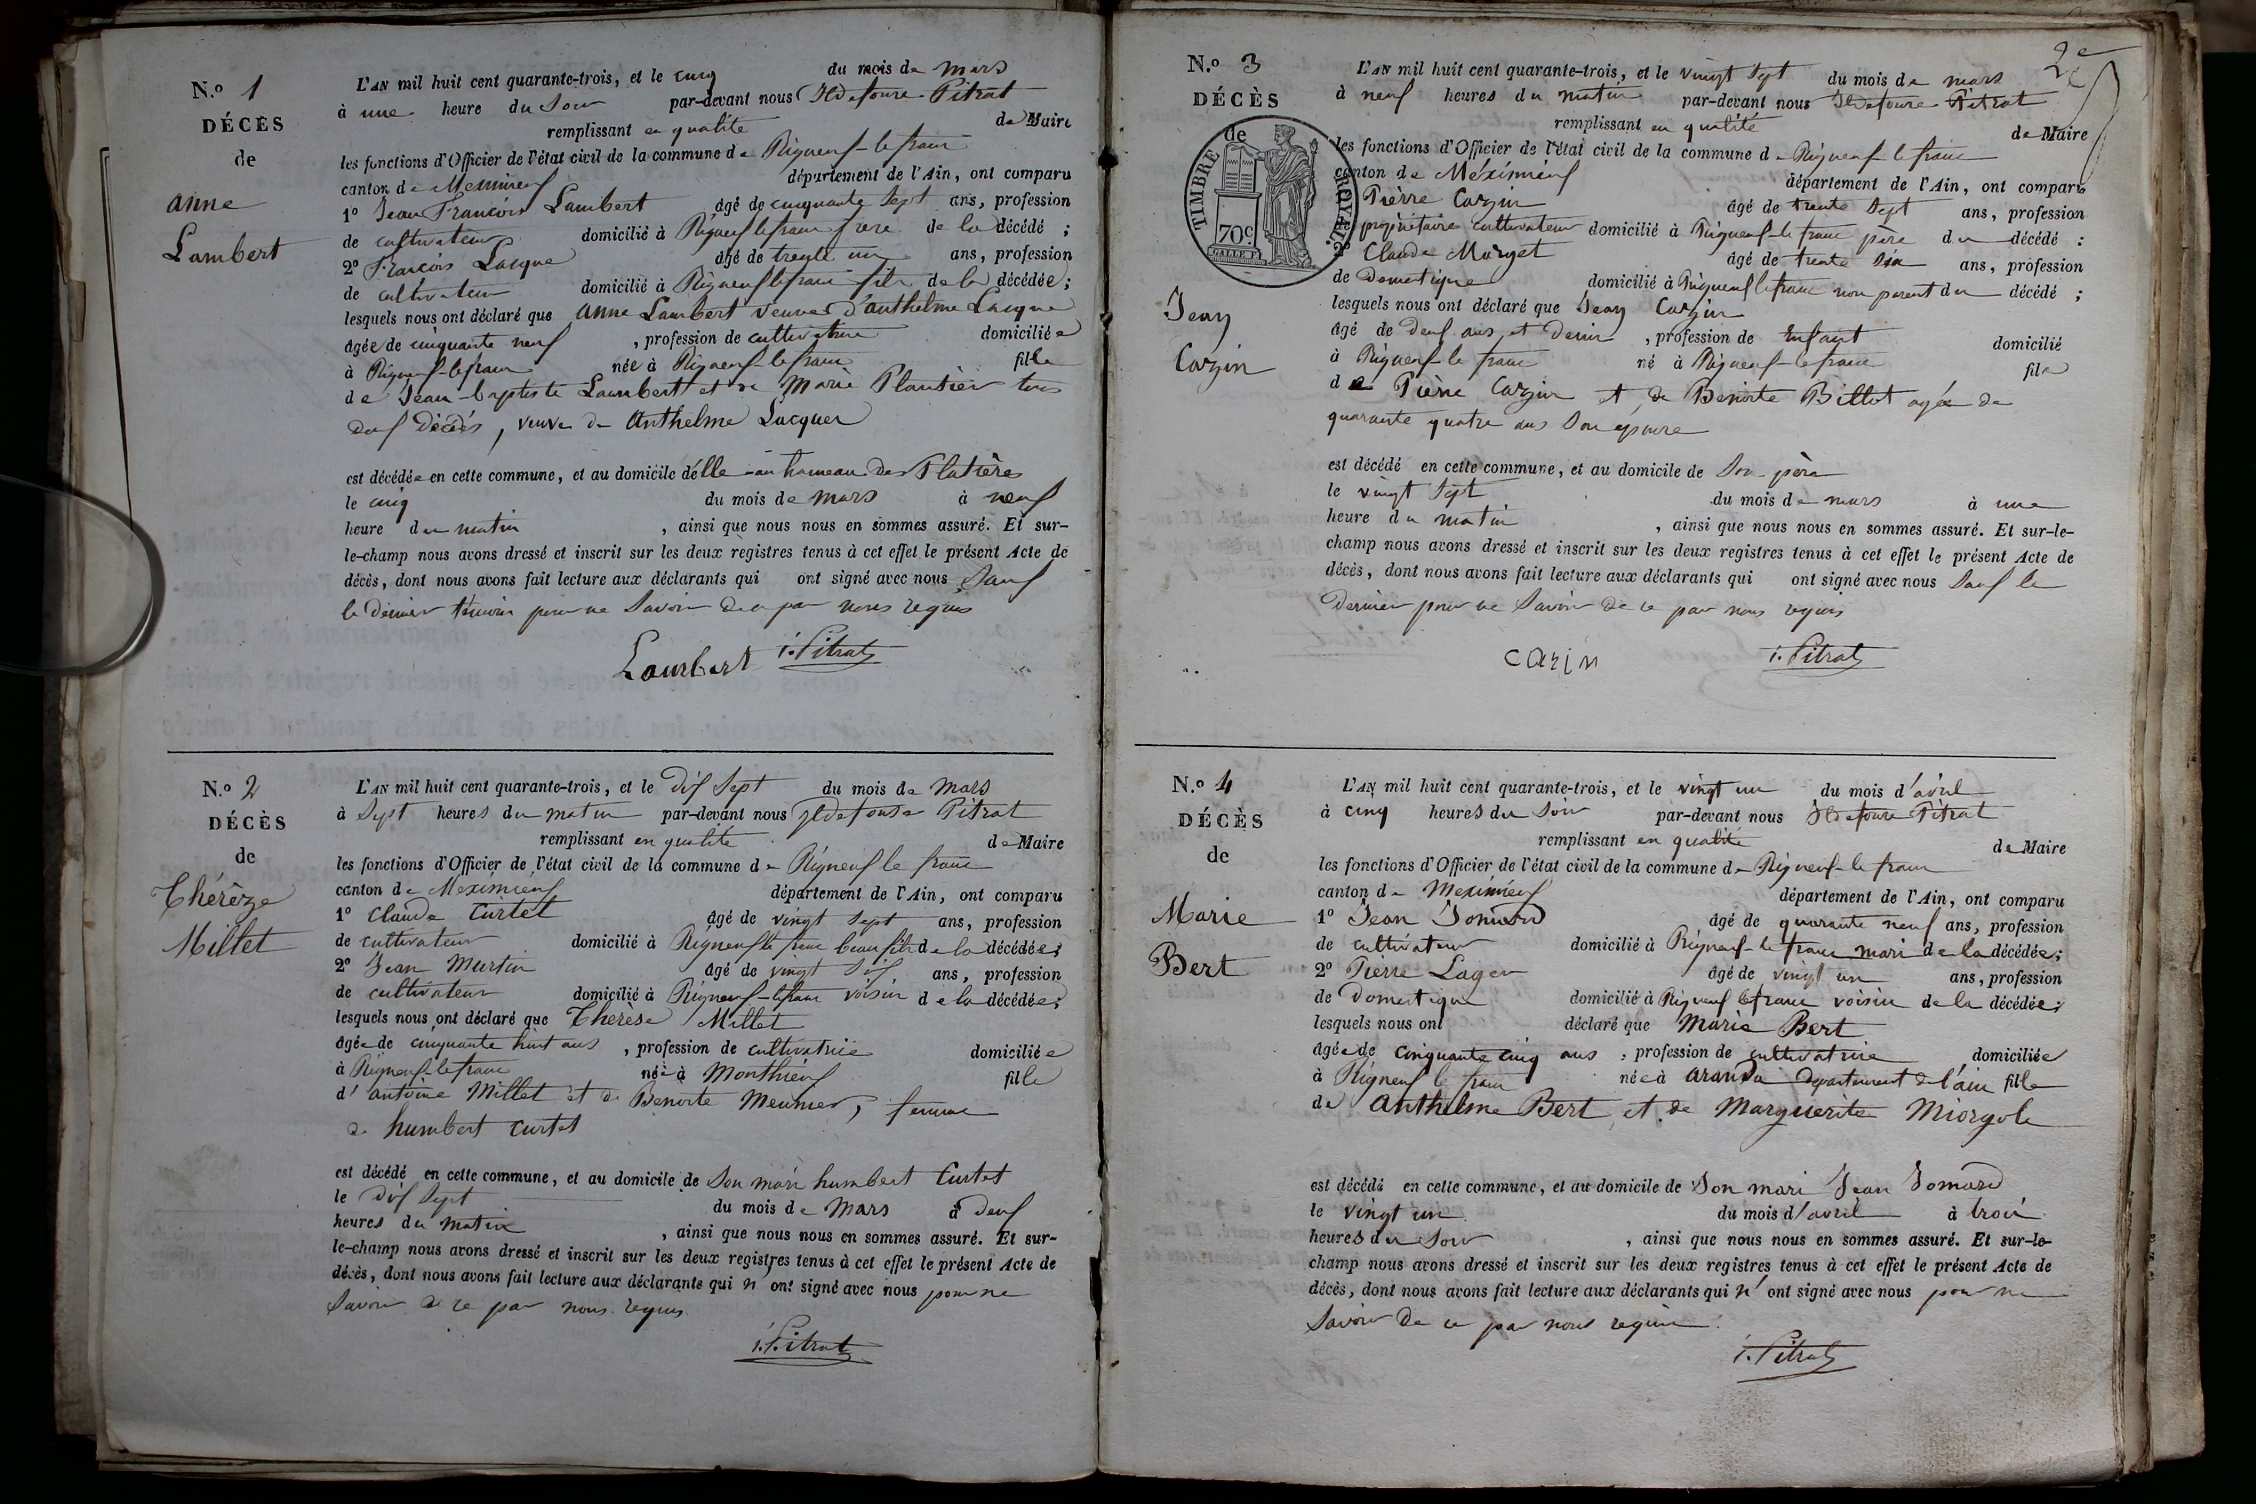 N.o 1
DÉCÈS
de
anne
Lambert
L'AN mil huit cent quarante-trois, et le cinq du mois de mars
à une heure du Soir par-devant nous Ildefonse Pitrat
remplissant en qualité de Maire
les fonctions d'Officier de l'état civil de la commune de Rigneux-le franc
canton de Meximieux département de l'Ain, ont comparu
1° Jean François Lambert âgé de cinquante Sept ans, profession
de cultivateur domicilié à Rigneux le franc frère de la décédé ;
2° François Lacque âgé de trente un ans, profession
de cultivateur domicilié à Rigneux le franc fils de la décédée ;
lesquels nous ont déclaré que anne Lambert veuve d'anthelme Lacque
âgée de cinquante neuf , profession de cultivatrice domiciliée
à Rigneux-le franc née à Rigneux-le franc fille
de Jean-baptiste Lambert et de Marie Plantier tous
deux décédés, veuve de Anthelme Lacquer
est décédée en cette commune, et au domicile d'elle au hameau des Platières
le cinq du mois de mars à neuf
heure du matin , ainsi que nous nous en sommes assuré. Et sur-
le-champ nous avons dressé et inscrit sur les deux registres tenus à cet effet le présent Acte de
décès, dont nous avons fait lecture aux déclarants qui ont signé avec nous Sauf
le dernier témoin pour ne Savoir de ce par nous requis
Lambert i. Pitrat
N.o 2
DÉCÈS
de
Thérèze
Millet
L'AN mil huit cent quarante-trois, et le dix Sept du mois de mars
à Sept heures du matin par-devant nous Ildefonse Pitrat
remplissant en qualité de Maire
les fonctions d'Officier de l'état civil de la commune de Rigneux le franc
canton de Meximieux département de l'Ain, ont comparu
1° Claude Curtet âgé de vingt Sept ans, profession
de cultivateur domicilié à Rigneux le franc beau fils de la décédée ;
2° Jean Martin âgé de vingt Six ans, profession
de cultivateur domicilié à Rigneux-le franc voisin de la décédée ;
lesquels nous ont déclaré que Thérèse Millet
âgée de cinquante huit ans , profession de cultivatrice domiciliée
à Rigneux le franc née à Monthieux fille
d'antoine Millet et de Benoite Meunier, femme
de humbert Curtet
est décédé en cette commune, et au domicile de Son mari humbert Curtet
le dix Sept du mois de Mars à deux
heures du matin , ainsi que nous nous en sommes assuré. Et sur-
le-champ nous avons dressé et inscrit sur les deux registres tenus à cet effet le présent Acte de
décès, dont nous avons fait lecture aux déclarants qui n'ont signé avec nous pour ne
Savoir de ce par nous requis
i. Pitrat
2e
N.o 3
DÉCÈS
de
TIMBRE ROYAL.
70c
Jean
Carzin
L'AN mil huit cent quarante-trois, et le vingt Sept du mois de mars
à neuf heures du matin par-devant nous Ildefonse Pitrat
remplissant en qualité de Maire
les fonctions d'Officier de l'état civil de la commune de Rigneux-le franc
canton de Méximieux département de l'Ain, ont comparu
Pierre Carzin âgé de trente Sept ans, profession
de propriétaire cultivateur domicilié à Rigneux-le franc père du décédé ;
2° Claude Murget âgé de trente Six ans, profession
de Domestique domicilié à Rigneux le franc non parent du décédé ;
lesquels nous ont déclaré que Jean Carzin
âgé de deux ans et demi , profession de Enfant domicilié
à Rigneux-le franc né à Rigneux-le franc fils
de Pierre Carzin et de Benoite Billet agée de
quarante quatre ans Son épouse
est décédé en cette commune, et au domicile de Son père
le vingt Sept du mois de mars à une
heure du matin , ainsi que nous nous en sommes assuré. Et sur-le-
champ nous avons dressé et inscrit sur les deux registres tenus à cet effet le présent Acte de
décès, dont nous avons fait lecture aux déclarants qui ont signé avec nous Sauf le
dernier pour ne Savoir de ce par nous requis
carin i. Pitrat
N.o 4
DÉCÈS
de
Marie
Bert
L'AN mil huit cent quarante-trois, et le vingt un du mois d'avril
à cinq heures du Soir par-devant nous Ildefonse Pitrat
remplissant en qualité de Maire
les fonctions d'Officier de l'état civil de la commune de Rigneux-le franc
canton de Meximieux département de l'Ain, ont comparu
1° Jean Jomard âgé de quarante neuf ans, profession
de cultivateur domicilié à Rigneux-le franc mari de la décédée ;
2° Pierre Lager âgé de vingt un ans, profession
de Domestique domicilié à Rigneux le franc voisin de la décédée ;
lesquels nous ont déclaré que Marie Bert
âgée de cinquante cinq ans , profession de cultivatrice domiciliée
à Rigneux le franc née à arandu département de l'ain fille
de Anthelme Bert et de Marguerite Miorgole
est décédé en cette commune, et au domicile de Son mari Jean Jomard
le vingt un du mois d'avril à trois
heures du Soir , ainsi que nous nous en sommes assuré. Et sur-le-
champ nous avons dressé et inscrit sur les deux registres tenus à cet effet le présent Acte de
décès, dont nous avons fait lecture aux déclarants qui n'ont signé avec nous pour ne
Savoir de ce par nous requis.
i. Pitrat